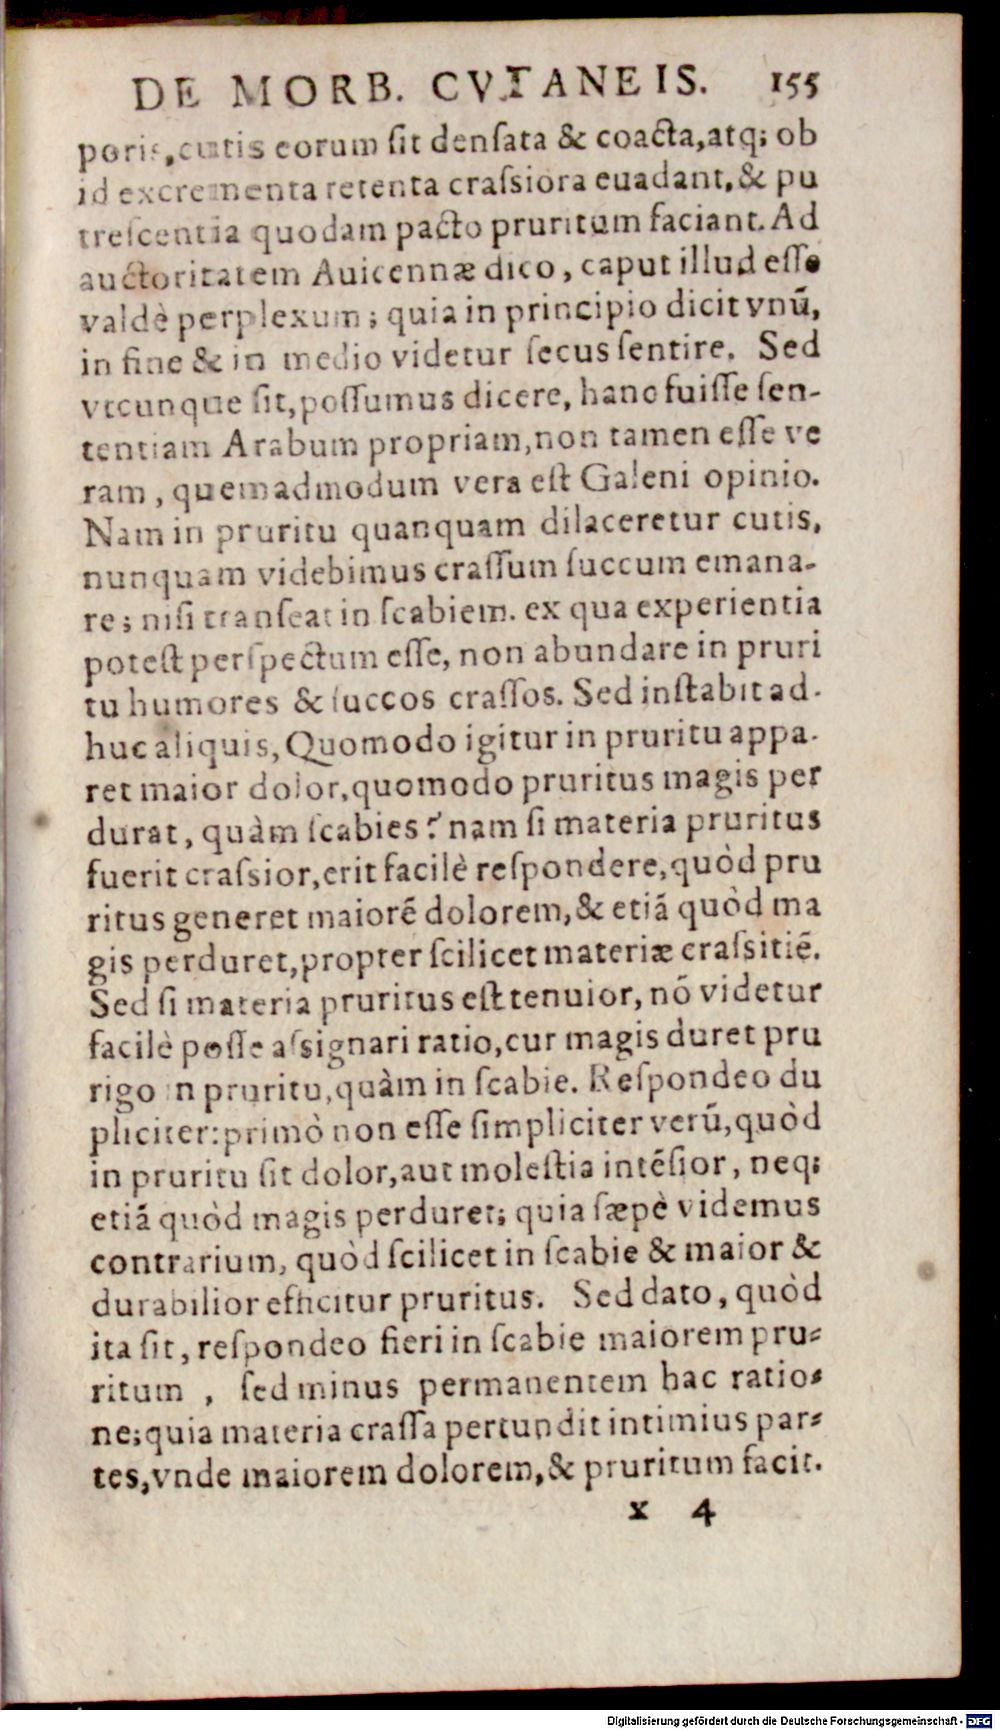 DE MORB. CVTANEIS. 155
poris, cutis eorum ſit denſata & coacta, atq; ob
id excrementa retenta craſsiora euadant, & pu
treſcentia quodam pacto pruritum faciant. Ad
auctoritatem Auicennæ dico, caput illud eſſe
valdè perplexum; quia in principio dicit vnū,
in fine & in medio videtur ſecus ſentire. Sed
vtcunque ſit, poſſumus dicere, hanc fuiſſe ſen-
tentiam Arabum propriam, non tamen eſſe ve
ram, quemadmodum vera eſt Galeni opinio.
Nam in pruritu quanquam dilaceretur cutis,
nunquam videbimus craſſum ſuccum emana-
re; niſi tranſeat in ſcabiem. ex qua experientia
poteſt perſpectum eſſe, non abundare in pruri
tu humores & ſuccos craſſos. Sed inſtabit ad-
huc aliquis, Quomodo igitur in pruritu appa-
ret maior dolor, quomodo pruritus magis per
durat, quàm ſcabies? nam ſi materia pruritus
fuerit craſsior, erit facilè reſpondere, quòd pru
ritus generet maiorē dolorem, & etiā quòd ma
gis perduret, propter ſcilicet materiæ craſsitiē.
Sed ſi materia pruritus eſt tenuior, nō videtur
facilè poſſe aſsignari ratio, cur magis duret pru
rigo in pruritu, quàm in ſcabie. Reſpondeo du
pliciter: primò non eſſe ſimpliciter verū, quòd
in pruritu ſit dolor, aut moleſtia intēſior, neq;
etiā quòd magis perduret; quia ſæpè videmus
contrarium, quòd ſcilicet in ſcabie & maior &
durabilior efficitur pruritus. Sed dato, quòd
ita ſit, reſpondeo fieri in ſcabie maiorem pru-
ritum , ſed minus permanentem hac ratio-
ne; quia materia craſſa pertundit intimius par-
tes, vnde maiorem dolorem, & pruritum facit.
x 4
Digitalisierung gefördert durch die Deutsche Forschungsgemeinschaft - DFG